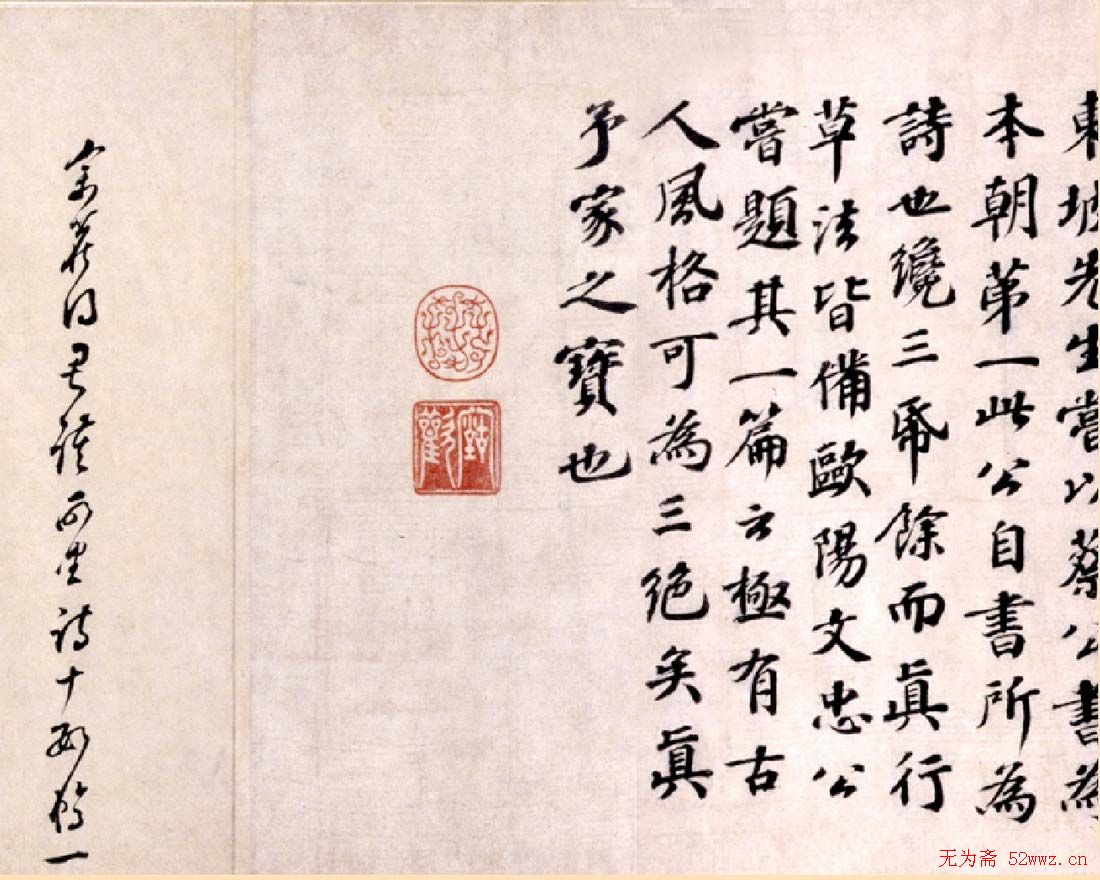 東坡先生嘗以蔡公書為
本朝第一此公自書所為
詩也纔三帋餘而眞行
草法皆備歐陽文忠公
嘗題其一篇云極有古
人風格可為三絕矣眞
予家之寶也
余舊得君謨
詩十
一
无为斋 52wwz.cn